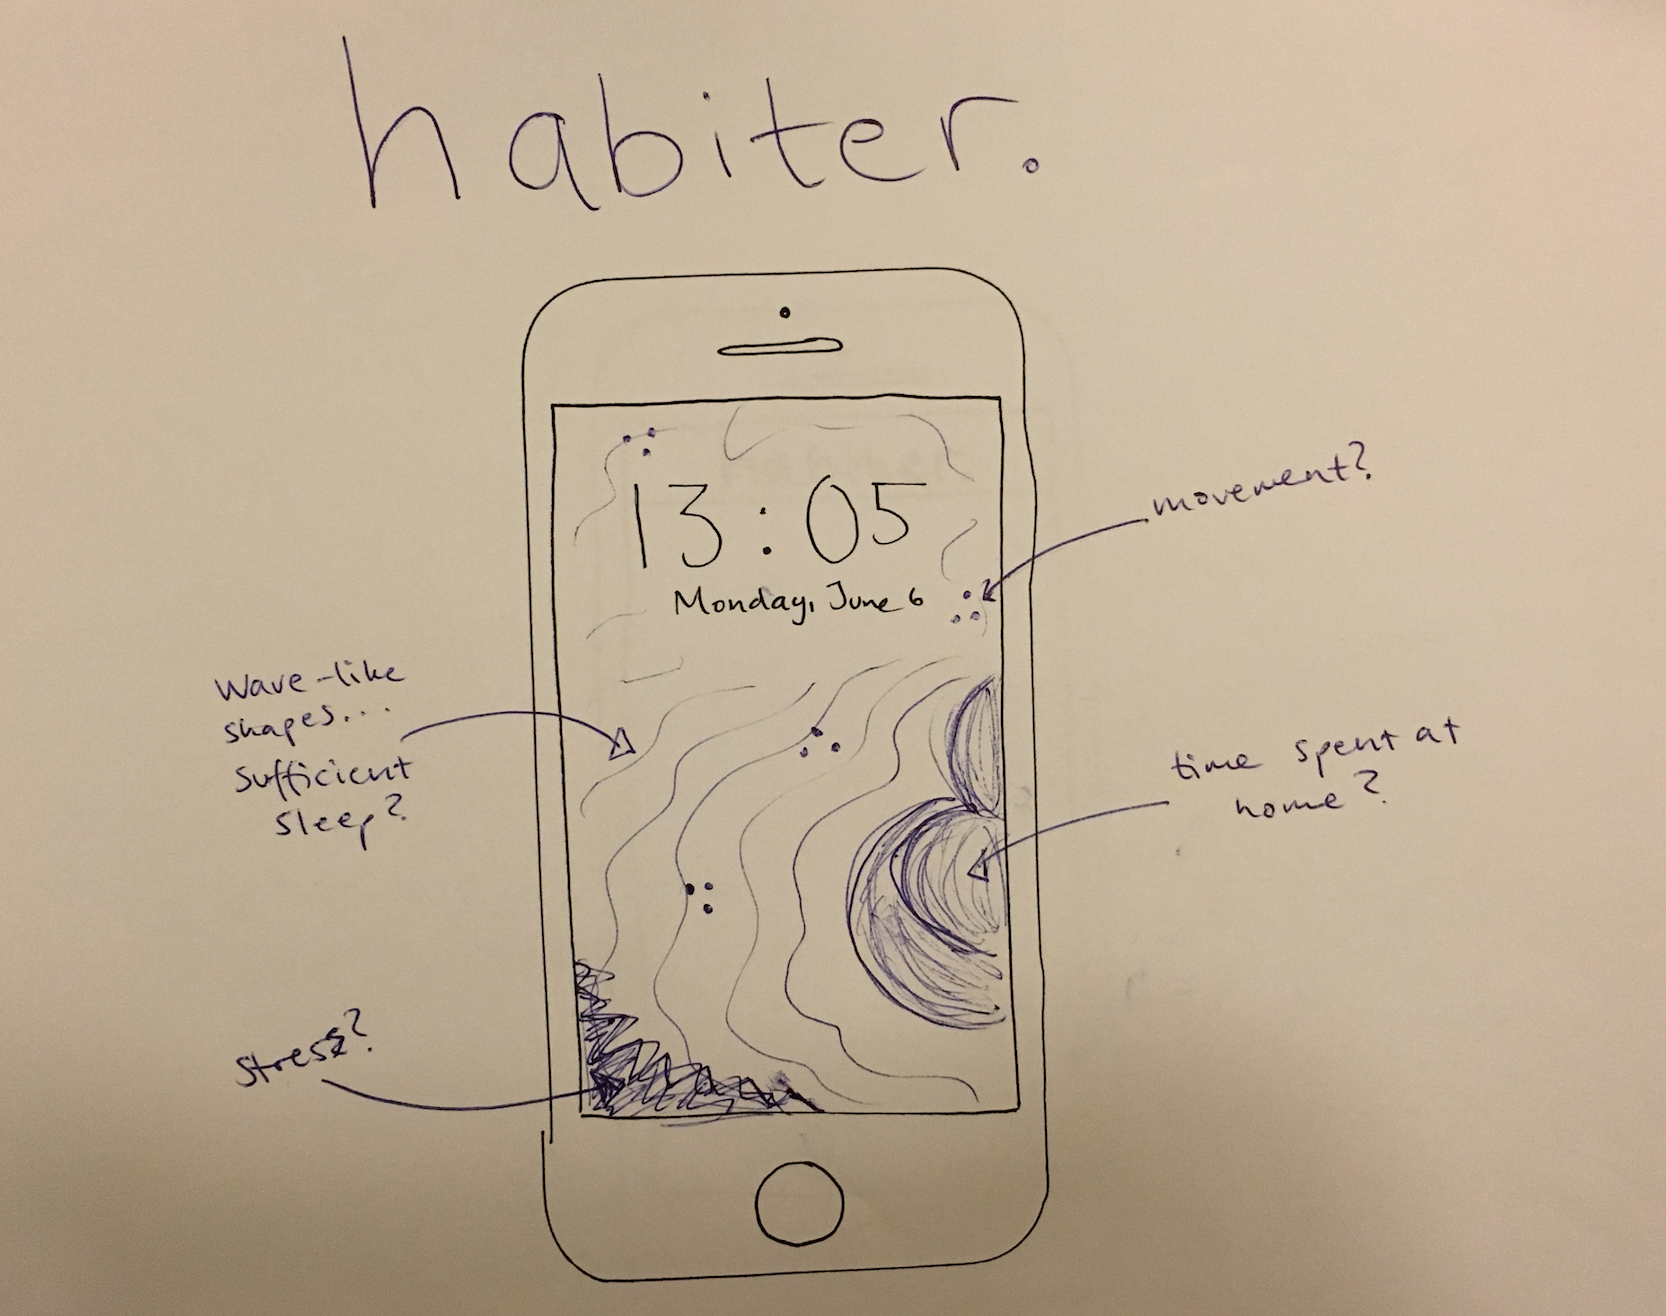 habiter.
13:05
Monday, June 6
movement?
Wave-like
shapes...
Sufficient
Sleep?
time spent at
home?
Stress?